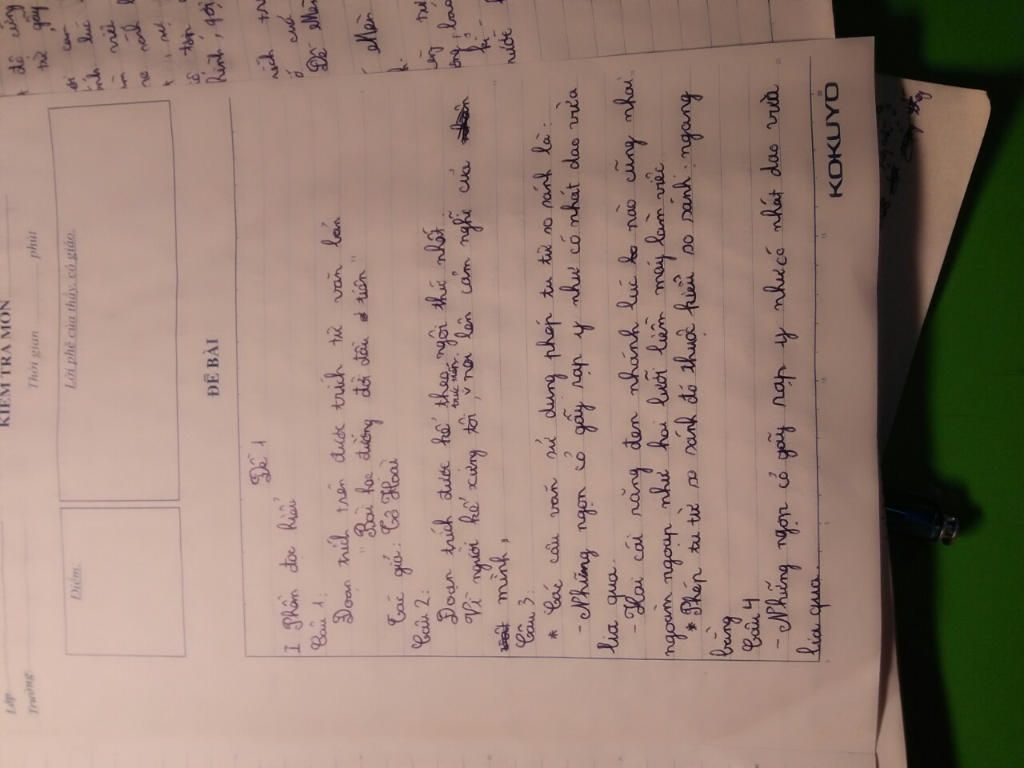 KIỂM TRA MÔN
Lớp
Trường
Thời gian phút
Điểm:
Lời phê của thầy, cô giáo:
ĐỀ BÀI
Đề 1
I Phần đọc hiểu
Câu 1:
Đoạn trích trên được trích từ văn bản
"Bài học đường đời đầu tiên"
Tác giả: Tô Hoài
Câu 2:
Đoạn trích được kể theo ngôi thứ nhất.
Vì người kể xưng tôi, trực tiếp nói lên cảm nghĩ của
mình,
Câu 3:
* Các câu văn sử dụng phép tu từ so sánh là:
- Những ngọn cỏ gẫy rạp y như có nhát dao vừa
lia qua.
- Hai cái răng đen nhánh lúc nào cũng nhai
ngoàm ngoạp như hai lưỡi liềm máy làm việc
* Phép tu từ so sánh đó thuộc kiểu so sánh: ngang
bằng
Câu 4
- Những ngọn cỏ gãy rạp y như có nhát dao vừa
lia qua.
KOKUYO